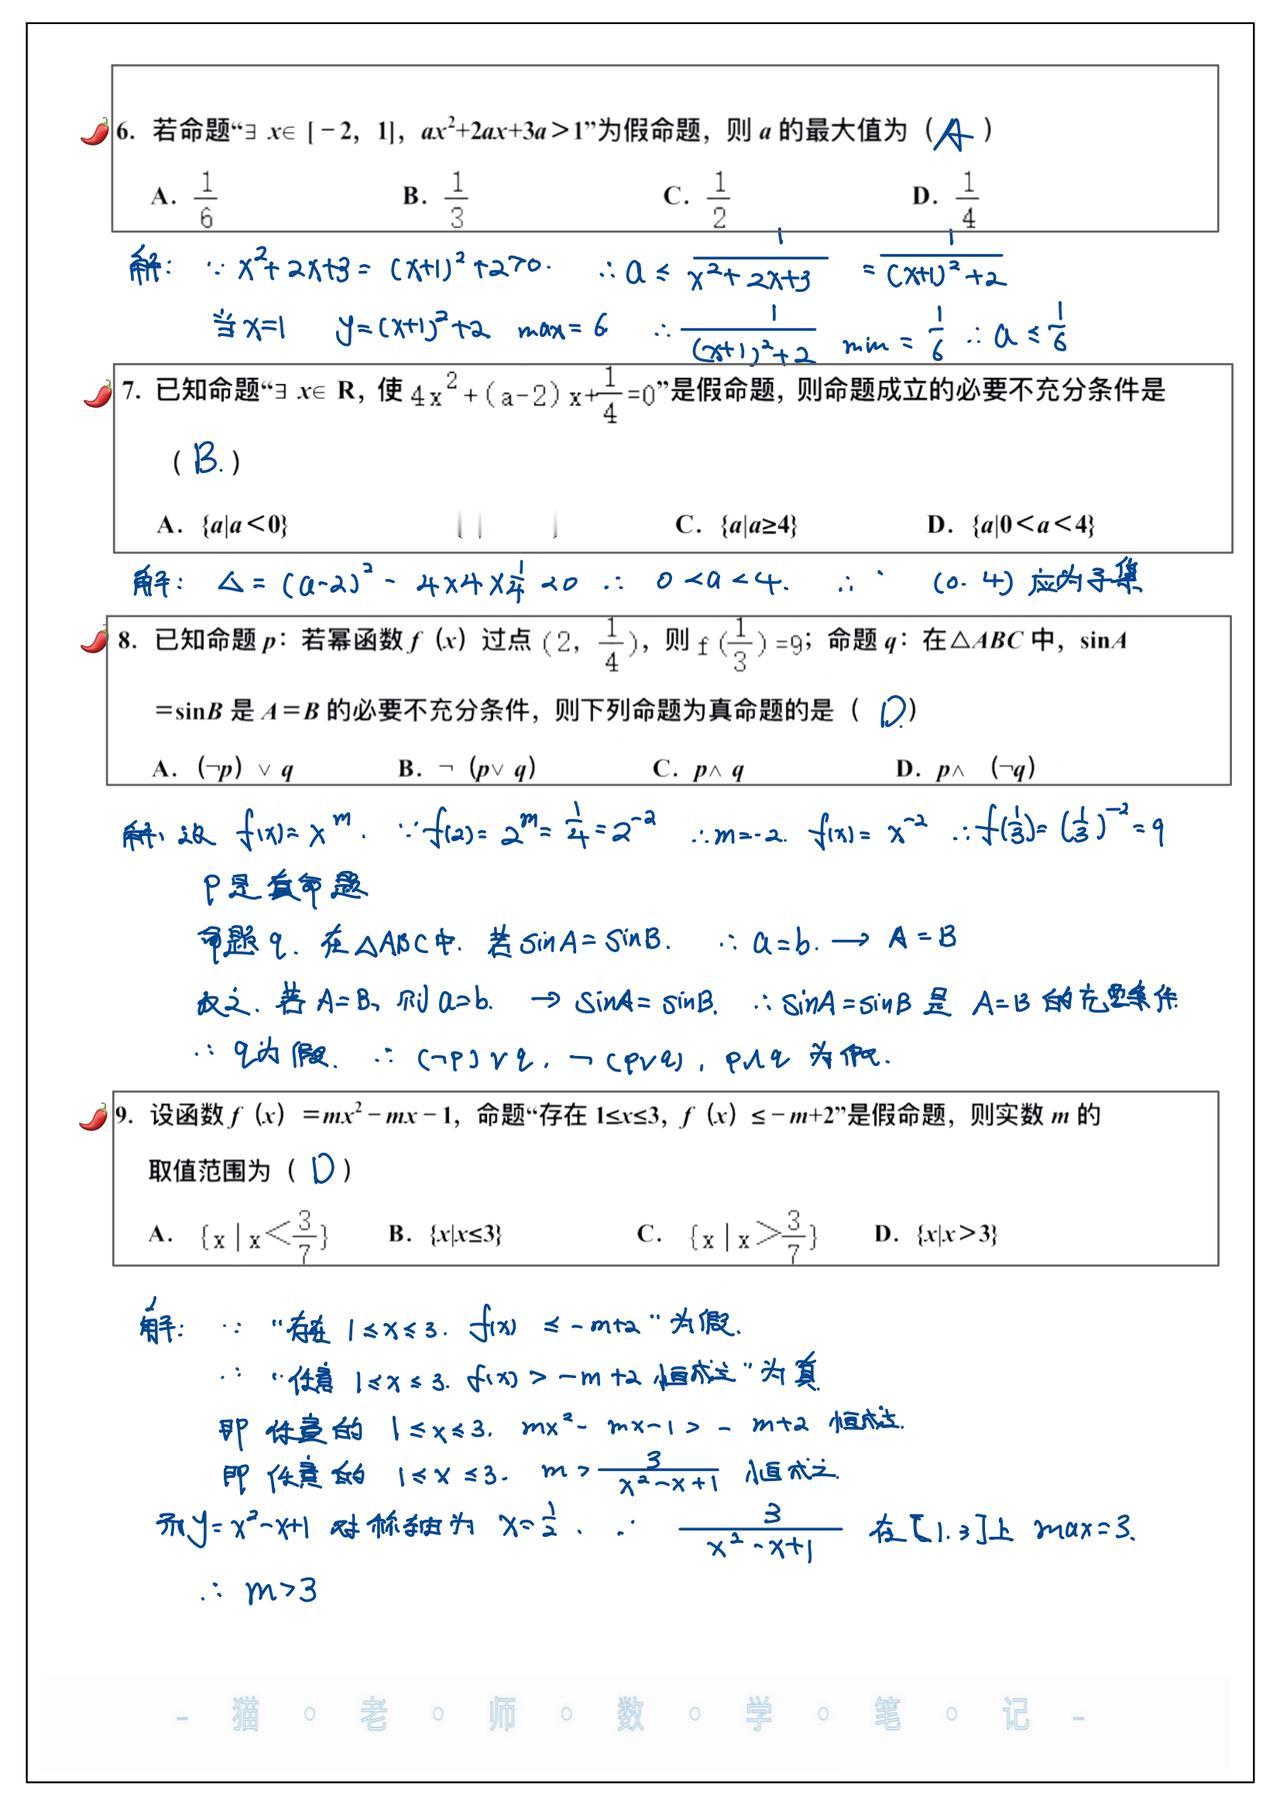 6. 若命题“∃ x∈ [-2, 1], ax²+2ax+3a>1”为假命题，则 a 的最大值为（A）
A. 1/6 B. 1/3 C. 1/2 D. 1/4
解: ∵ x²+2x+3=(x+1)²+2>0. ∴ a ≤ 1/(x²+2x+3) = 1/((x+1)²+2)
当x=1 y=(x+1)²+2 max=6 ∴ 1/((x+1)²+2) min = 1/6 ∴ a ≤ 1/6
7. 已知命题“∃ x∈ R，使 4x²+(a-2)x+1/4=0”是假命题，则命题成立的必要不充分条件是
（B.）
A. {a|a<0} C. {a|a≥4} D. {a|0<a<4}
解: △=(a-2)²-4×4×1/4<0 ∴ 0<a<4. ∴ (0.4) 应为子集
8. 已知命题 p：若幂函数 f（x）过点 (2, 1/4)，则 f(1/3)=9；命题 q：在△ABC 中，sinA
=sinB 是 A=B 的必要不充分条件，则下列命题为真命题的是（D）
A.（¬p）∨ q B. ¬（p∨ q） C. p∧ q D. p∧ （¬q）
解, 设 f(x)=x^m. ∵ f(2)=2^m=1/4=2^-2 ∴ m=-2. f(x)=x^-2 ∴ f(1/3)=(1/3)^-2=9
P是真命题
命题q. 在△ABC中. 若sinA=sinB. ∴ a=b. → A=B
反之. 若A=B, 则a=b. → sinA=sinB. ∴ sinA=sinB 是 A=B 的充要条件
∴ q为假. ∴ (¬p)∨q, ¬(p∨q), p∧q 为假.
9. 设函数 f（x）=mx²-mx-1，命题“存在 1≤x≤3，f（x）≤-m+2”是假命题，则实数 m 的
取值范围为（D）
A. {x|x<3/7} B. {x|x≤3} C. {x|x>3/7} D. {x|x>3}
解: ∵ “存在 1≤x≤3. f(x) ≤-m+2”为假.
∴ “任意 1≤x≤3. f(x)>-m+2 恒成立”为真
即 任意的 1≤x≤3. mx²-mx-1>-m+2 恒成立.
即 任意的 1≤x≤3. m>3/(x²-x+1) 恒成立.
而y=x²-x+1 对称轴为 x=1/2. ∴ 3/(x²-x+1) 在[1.3]上 max=3.
∴ m>3
- 猫 · 老 · 师 · 数 · 学 · 笔 · 记 -